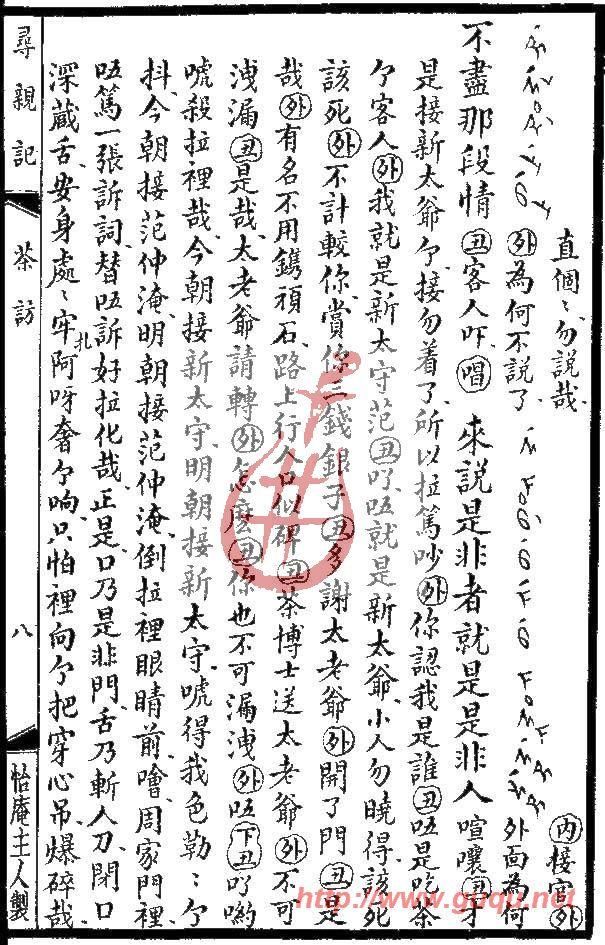 不盡那段情。(丑)客人吓。(唱)來說是非者就是是非人。
直個々勿說哉。
(外)為何不說了。
(內)接官(外)外面為何喧嚷(丑)才
是接新太爺个。接勿着了。所以拉篤吵(外)你認我是誰(丑)唔是吃茶
个客人(外)我就是新太守范(丑)吖唔就是新太爺。小人勿曉得。該死
該死(外)不計較你。賞你三錢銀子(丑)多謝太老爺(外)開了門(丑)是
哉(外)有名不用鐫頑石。路上行人口似碑(丑)茶博士送太老爺(外)不可
洩漏(丑)是哉。太老爺請轉(外)怎麽(丑)你也不可漏洩(外)唔(下丑)吖喲
唬殺拉裡哉。今朝接新太守。明朝接新太守。唬得我色勒々个
抖。今朝接范仲淹。明朝接范仲淹。倒拉裡眼睛前。噲周家門裡
唔篤一張訴詞。替唔訴好拉化哉。正是口乃是非門。舌乃斬人刀。閉口
深藏舌。安身處々牢。阿呀奢个响。只怕裡向个把穿心吊爆碎哉
北
尋親記
茶訪
八
怡庵主人製
http://www.guqu.net